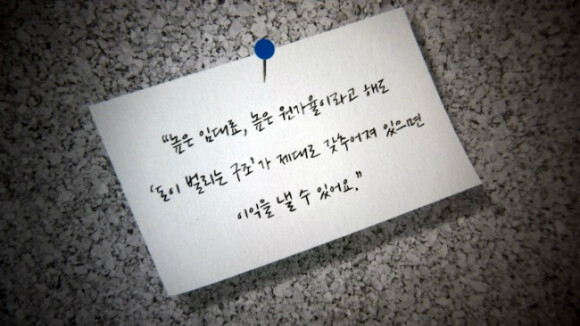 “높은 임대료, 높은 원가율이라고 해도
‘돈이 벌리는 구조’가 제대로 갖추어져 있으면
이익을 낼 수 있어요.”